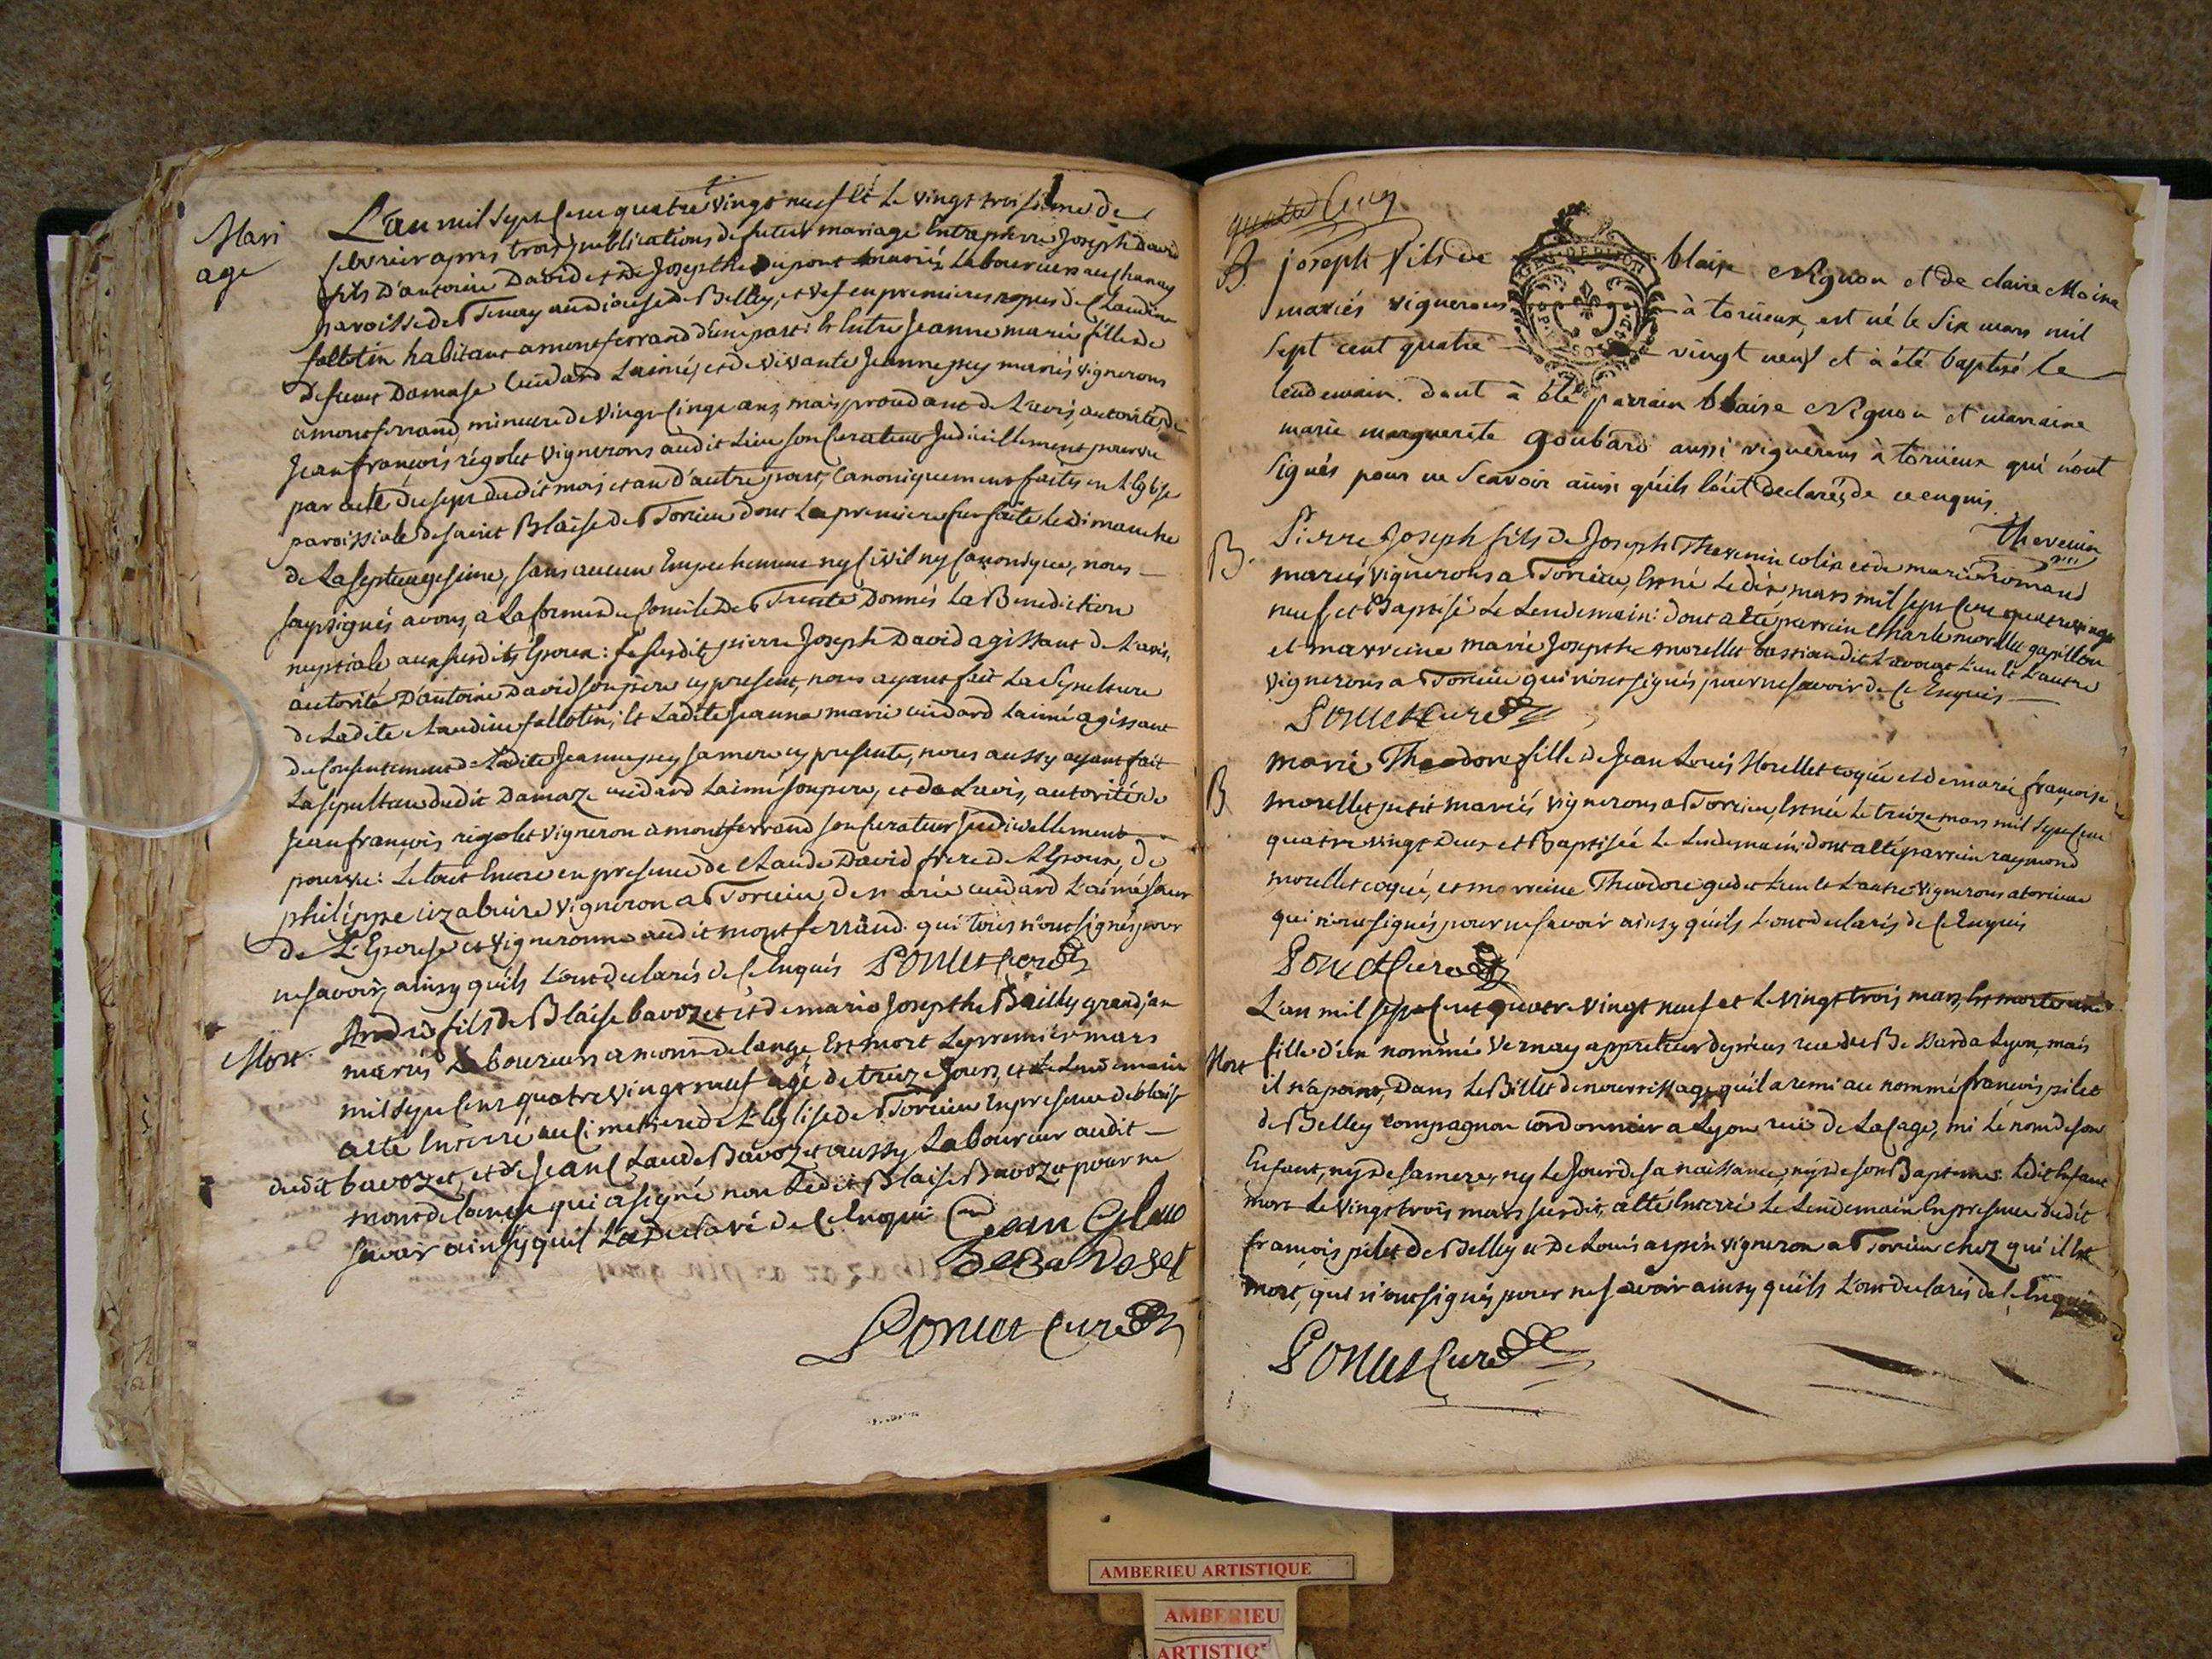 Mari
age
L'an mil sept cent quatre vingt neuf et le vingt troisieme de
febvrier apres trois publications de futur mariage Entre pierre Joseph David
fils D'antoine David et de Josepthe Dupont mariés Laboureurs au chanay
paroisse de Tenay au diocese de Belley, et vef en premieres nopces de Claudine
follotin habitant a montferrand d'une part: Et Entre Jeanne marie fille de
defunt Damase cuidard Laimé, et de vivante Jeanne pey mariés vignerons
a montferrand, mineure de vingt cinqe ans, mais proudant de L'avis, autorité de
Jean françois rigolet vignerons audit Lieu son Curateur Judiciellement pourvu
par acte du sept dudit mois et an d'autre part, Canoniquement faites en L'Eglise
paroissiale de saint Blaise de Torcieu dont La premiere fut faite Le dimanche
de La septuagesime, sans aucun Empechement ny Civil ny Canonique, nous
soussignés avons, a La forme du Concile de Trente Donnés La Benediction
nuptiale aux susdits Epoux: Le susdit pierre Joseph David agissant de L'avis,
autorité D'antoine David son pere cy present, nous ayant fait La Sepulture
de Ladite Claudine follotin; Et Ladite Jeanne marie cuidard Laimé agissant
du Consentement de Ladite Jeanne pey sa mere cy presente, nous aussy ayant fait
La sepulture dudit Damaze cuidard Laimé son pere, et de L'avis, autorité de
Jean françois rigolet vigneron a montferrand son Curateur Judiciellement
pourvu: Le tout Encore en presence de Claude David frere de L'Epoux, de
philippe vigneron a Torcieu, de marie cuidard L'aimé sœur
de L'Epouse et vigneronne audit montferrand. qui tous n'ont signés pour
ne savoir, ainsy qu'ils L'ont declarés de Ce Enquis Poncet Curé
Mort
André fils de Blaise bavozet et de marie Josepthe Bailly grandjan
mariés Laboureurs a mont de lange Est mort Le premier mars
mil sept Cent quatre vingt neuf agé de treize Jours, et Le Lendemain
a eté Enterré au Cimetiere de L'Eglise de Torcieu En presence de blaise
dudit bavozet, et de Jean Claude Bavozet aussy Laboureur audit
mont de lange qui a signé non Ledit Blaise Bavozet pour ne
savoir ainsy quil L'a Declaré de Ce Enqui Jean Glau
de Ba Voset
Poncet Curé
B. joseph fils de blaise Mignon et de claire Moine
mariés vignerons à torcieux, est né le six mars mil
sept cent quatre vingt neuf et à été baptisé le
lendemain. dont à été parrain blaise Mignon et marraine
marie marguerite goubard aussi vignerons à torcieux qui n'ont
signés pour ne scavoir ainsi qu'ils l'ont declarés, de ce enquis.
Thevenin
B.
Pierre Joseph fils de Joseph Thevenin colin et de marie Romand
mariés vignerons a Torcieu, Est né Le dix mars mil sept cent quatre vingt
neuf et Baptisé Le Lendemain: dont a eté parrein Charle morellet papillon
et marreine marie Josepthe morellet bastian dit L'avocat L'un et L'autre
vignerons a Torcieu qui n'ont signés pour ne savoir de Ce Enquis
Ponet Curé
B
marie Theodore fille de Jean Louis Morellet coqué et de marie françoise
morellet petit mariés vignerons a Torcieu, Est née Le treize mars mil sept Cent
quatre vingt Deux et Baptisée Le Lendemain; dont a eté parrein raymond
morellet coqué, et marreine Theodore L'un et L'autre vignerons a torcieu
qui n'ont signés pour ne savoir ainsy qu'ils L'ont declarés de Ce Enquis
Ponet Curé
L'an mil sept Cent quatre vingt neuf et Le vingt trois mars, Est morte une
Mort
fille d'un nommé Vernay de Lyon, mais
il n'a point, Dans Le Billet de nourrissage qu'il a remi au nommé françois pilet
de Belley compagnon cordonnier a Lyon rue de La Cage, mi Le nom de son
Enfant, ny de sa mere, ny Le Jour de sa naissance, ny de son Baptemes. Ledit Enfant
mort Le vingt trois mars susdit, a eté Enterré Le Lendemain En presence dudit
françois pilet de Belley et de Louis arpin vigneron a Torcieu chez qui il Est
mort, qui n'ont signés pour ne savoir ainsy qu'ils L'ont declarés de Ce Enquis
Ponet Curé
AMBERIEU ARTISTIQUE
AMBERIEU
ARTISTIQ